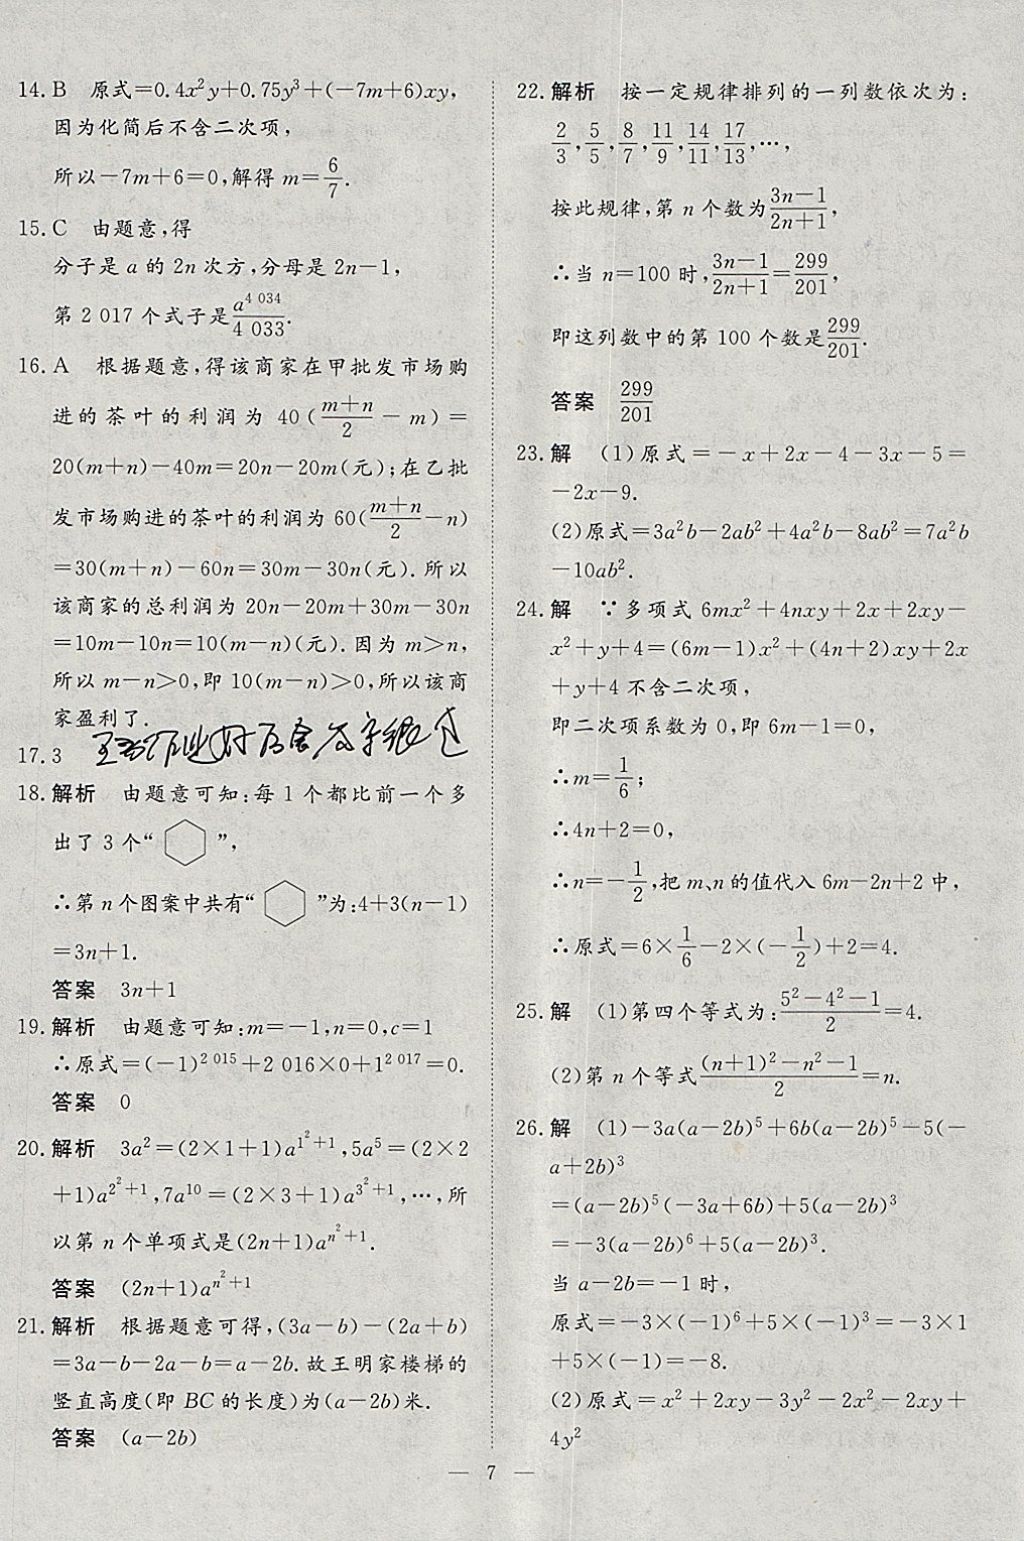 14. B　原式=0.4x²y+0.75y³+(-7m+6)xy,
因为化简后不含二次项,
所以-7m+6=0,解得 m=6/7.
15. C　由题意,得
分子是 a 的 2n 次方,分母是 2n-1,
第 2 017 个式子是a^{4 034}/4 033.
16. A　根据题意,得该商家在甲批发市场购
进的茶叶的利润为 40((m+n)/2-m)=
20(m+n)-40m=20n-20m(元);在乙批
发市场购进的茶叶的利润为 60((m+n)/2-n)
=30(m+n)-60n=30m-30n(元).所以
该商家的总利润为 20n-20m+30m-30n
=10m-10n=10(m-n)(元).因为 m>n,
所以 m-n>0,即 10(m-n)>0,所以该商
家盈利了.
17. 3
18. 解析　由题意可知:每 1 个都比前一个多
出了 3 个“⬡”,
∴第 n 个图案中共有“⬡”为:4+3(n-1)
=3n+1.
答案　3n+1
19. 解析　由题意可知:m=-1,n=0,c=1
∴原式=(-1)^{2 015}+2 016×0+1^{2 017}=0.
答案　0
20. 解析　3a²=(2×1+1)a^{1²+1},5a⁵=(2×2
+1)a^{2²+1},7a¹⁰=(2×3+1)a^{3²+1},…,所
以第 n 个单项式是(2n+1)a^{n²+1}.
答案　(2n+1)a^{n²+1}
21. 解析　根据题意可得,(3a-b)-(2a+b)
=3a-b-2a-b=a-2b.故王明家楼梯的
竖直高度(即 BC 的长度)为(a-2b)米.
答案　(a-2b)
22. 解析　按一定规律排列的一列数依次为:
2/3,5/5,8/7,11/9,14/11,17/13,…,
按此规律,第 n 个数为(3n-1)/(2n+1),
∴当 n=100 时,(3n-1)/(2n+1)=299/201,
即这列数中的第 100 个数是299/201.
答案　299/201
23. 解　(1)原式=-x+2x-4-3x-5=
-2x-9.
(2)原式=3a²b-2ab²+4a²b-8ab²=7a²b
-10ab².
24. 解　∵多项式 6mx²+4nxy+2x+2xy-
x²+y+4=(6m-1)x²+(4n+2)xy+2x
+y+4 不含二次项,
即二次项系数为 0,即 6m-1=0,
∴m=1/6;
∴4n+2=0,
∴n=-1/2,把 m、n 的值代入 6m-2n+2 中,
∴原式=6×1/6-2×(-1/2)+2=4.
25. 解　(1)第四个等式为:(5²-4²-1)/2=4.
(2)第 n 个等式((n+1)²-n²-1)/2=n.
26. 解　(1)-3a(a-2b)⁵+6b(a-2b)⁵-5(-
a+2b)³
=(a-2b)⁵(-3a+6b)+5(a-2b)³
=-3(a-2b)⁶+5(a-2b)³.
当 a-2b=-1 时,
原式=-3×(-1)⁶+5×(-1)³=-3×1
+5×(-1)=-8.
(2)原式=x²+2xy-3y²-2x²-2xy+
4y²
— 7 —